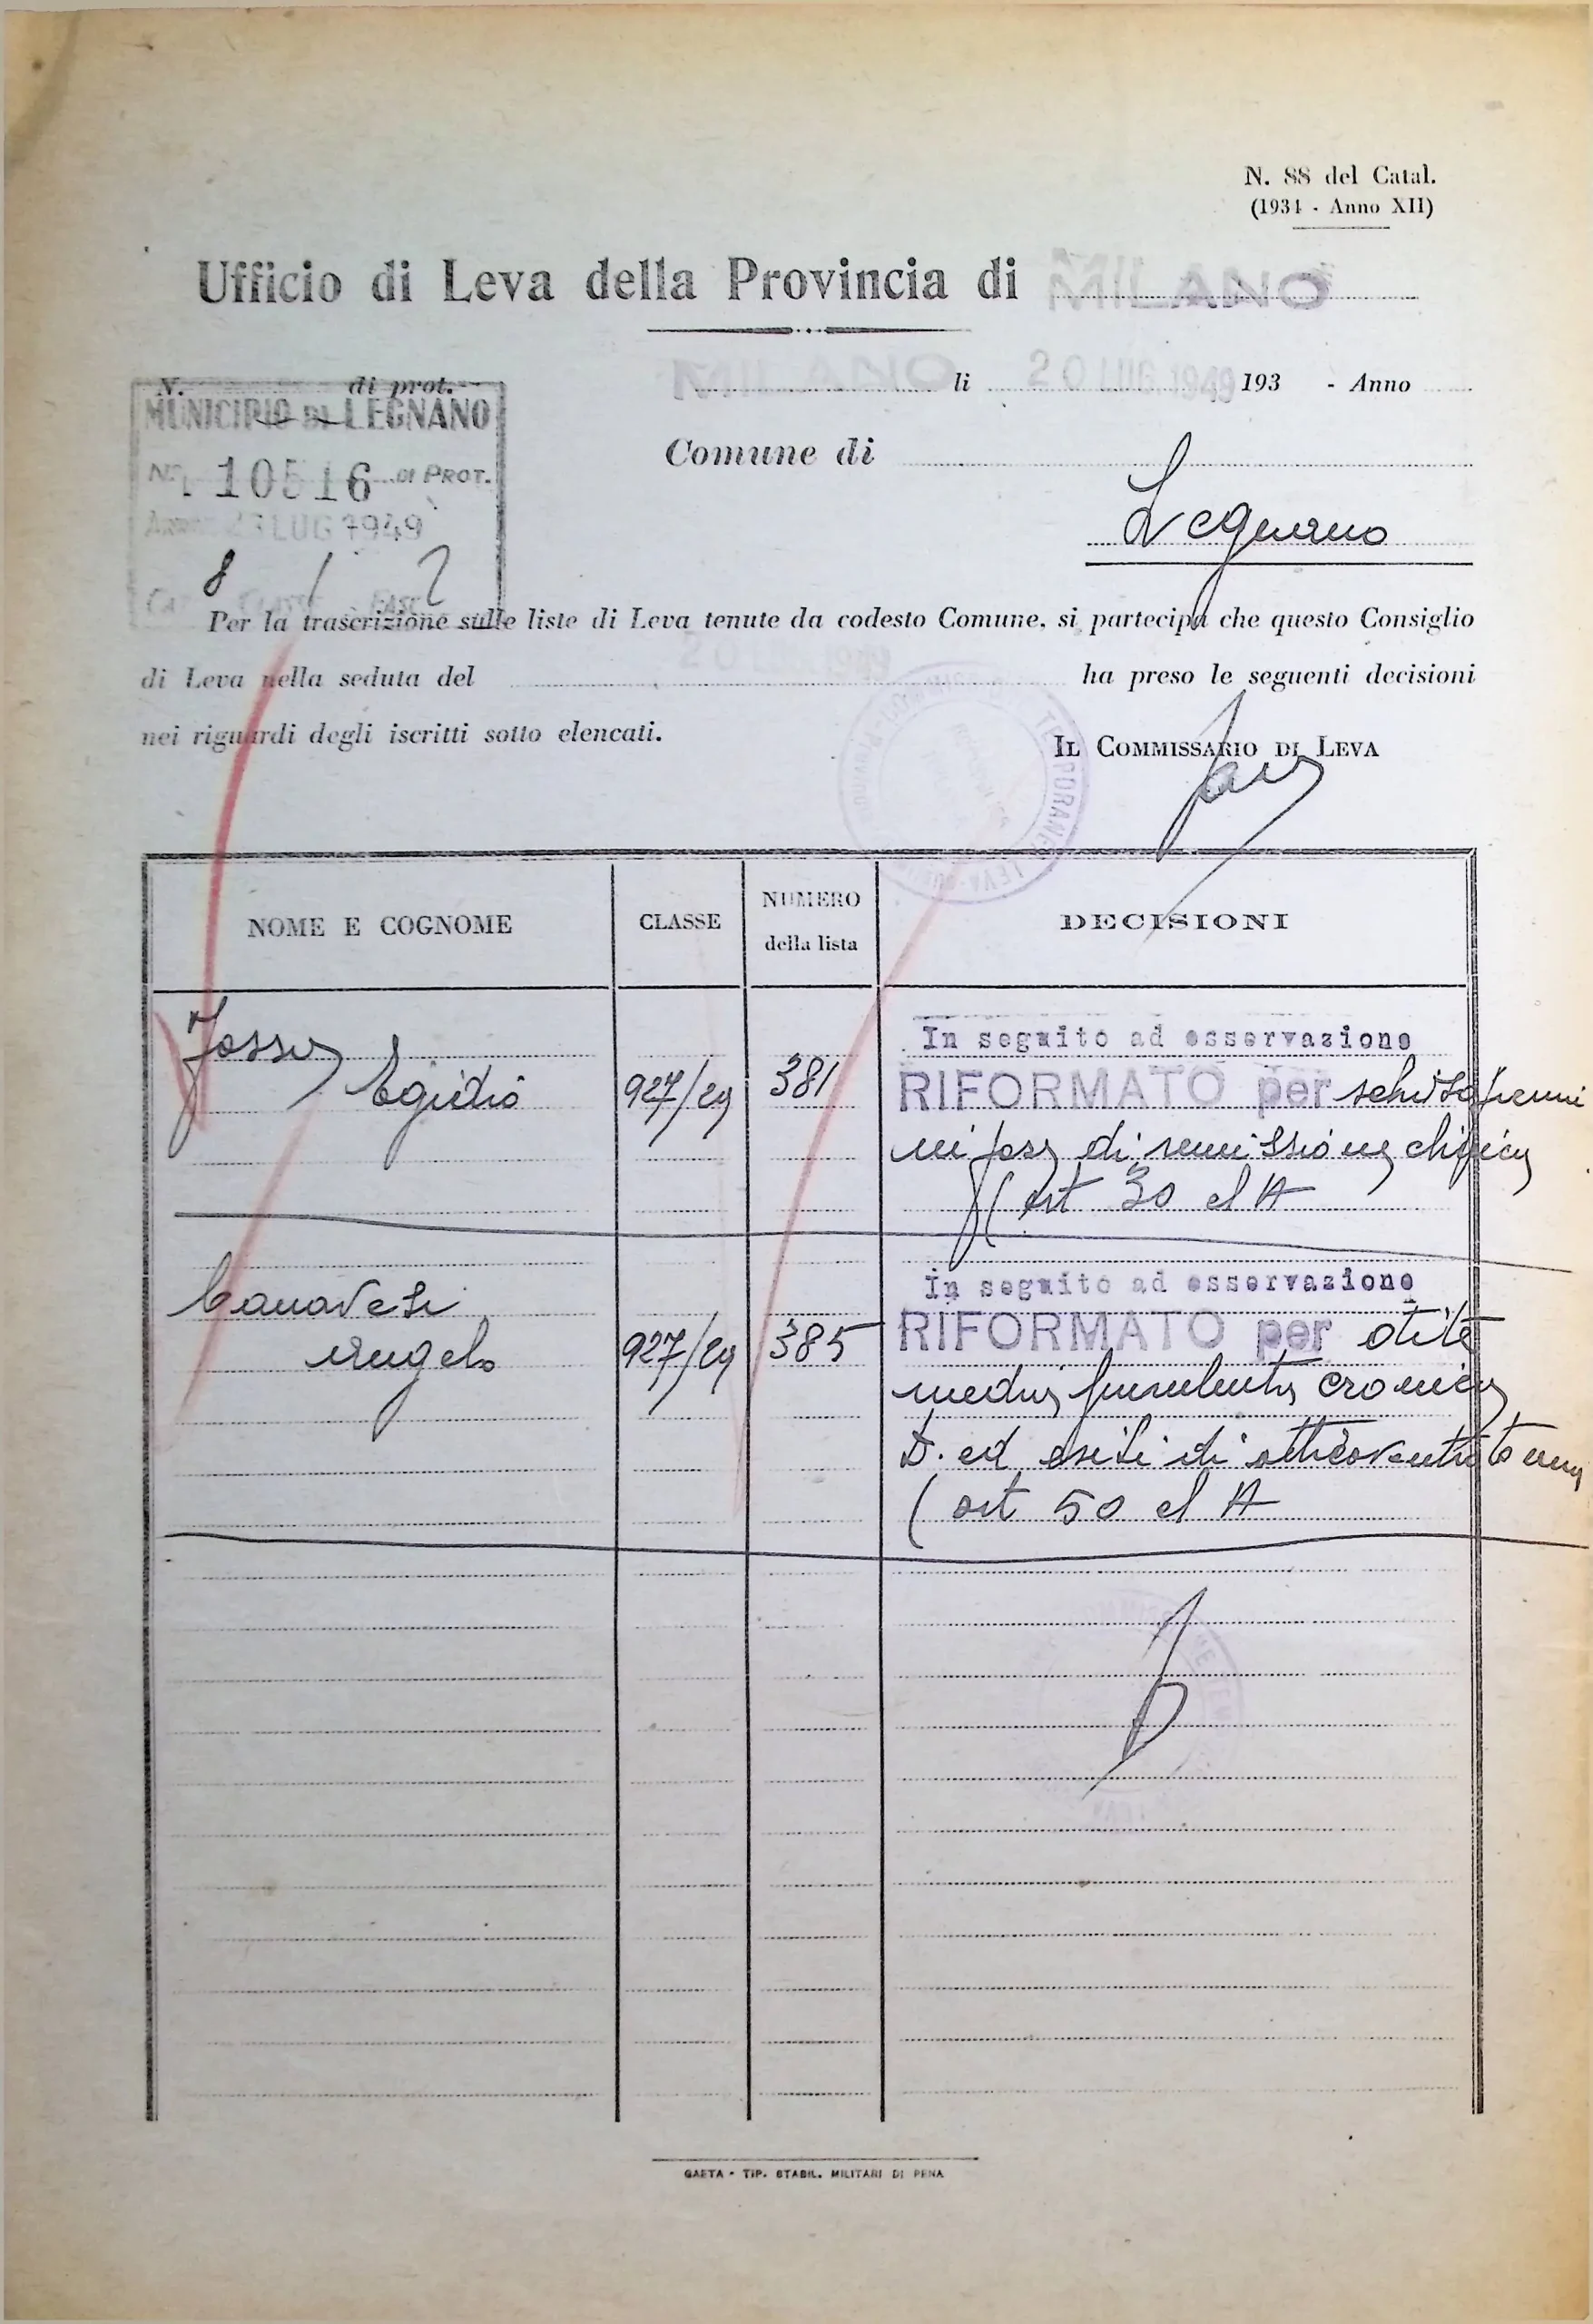 N. 88 del Catal.
(1934 - Anno XII)
Ufficio di Leva della Provincia di MILANO
N. di prot.
MUNICIPIO DI LEGNANO
N. 10516 DI PROT.
23 LUG 1949
8 1 2
MILANO li 20 LUG. 1949 193 - Anno
Comune di
Legnano
Per la trascrizione sulle liste di Leva tenute da codesto Comune, si partecipa che questo Consiglio
di Leva nella seduta del 20 LUG. 1949 ha preso le seguenti decisioni
nei riguardi degli iscritti sotto elencati.
IL COMMISSARIO DI LEVA
NOME E COGNOME CLASSE NUMERO della lista DECISIONI
In seguito ad osservazione
Egidio 927/29 381 RIFORMATO per schizofrenia
in fase di remissione clinica
(art 30 el A
Canavesi In seguito ad osservazione
Angelo 927/29 385 RIFORMATO per otite
media purulenta cronica
D. ed esiti di
(art 50 el A
GAETA - TIP. STABIL. MILITARI DI PENA